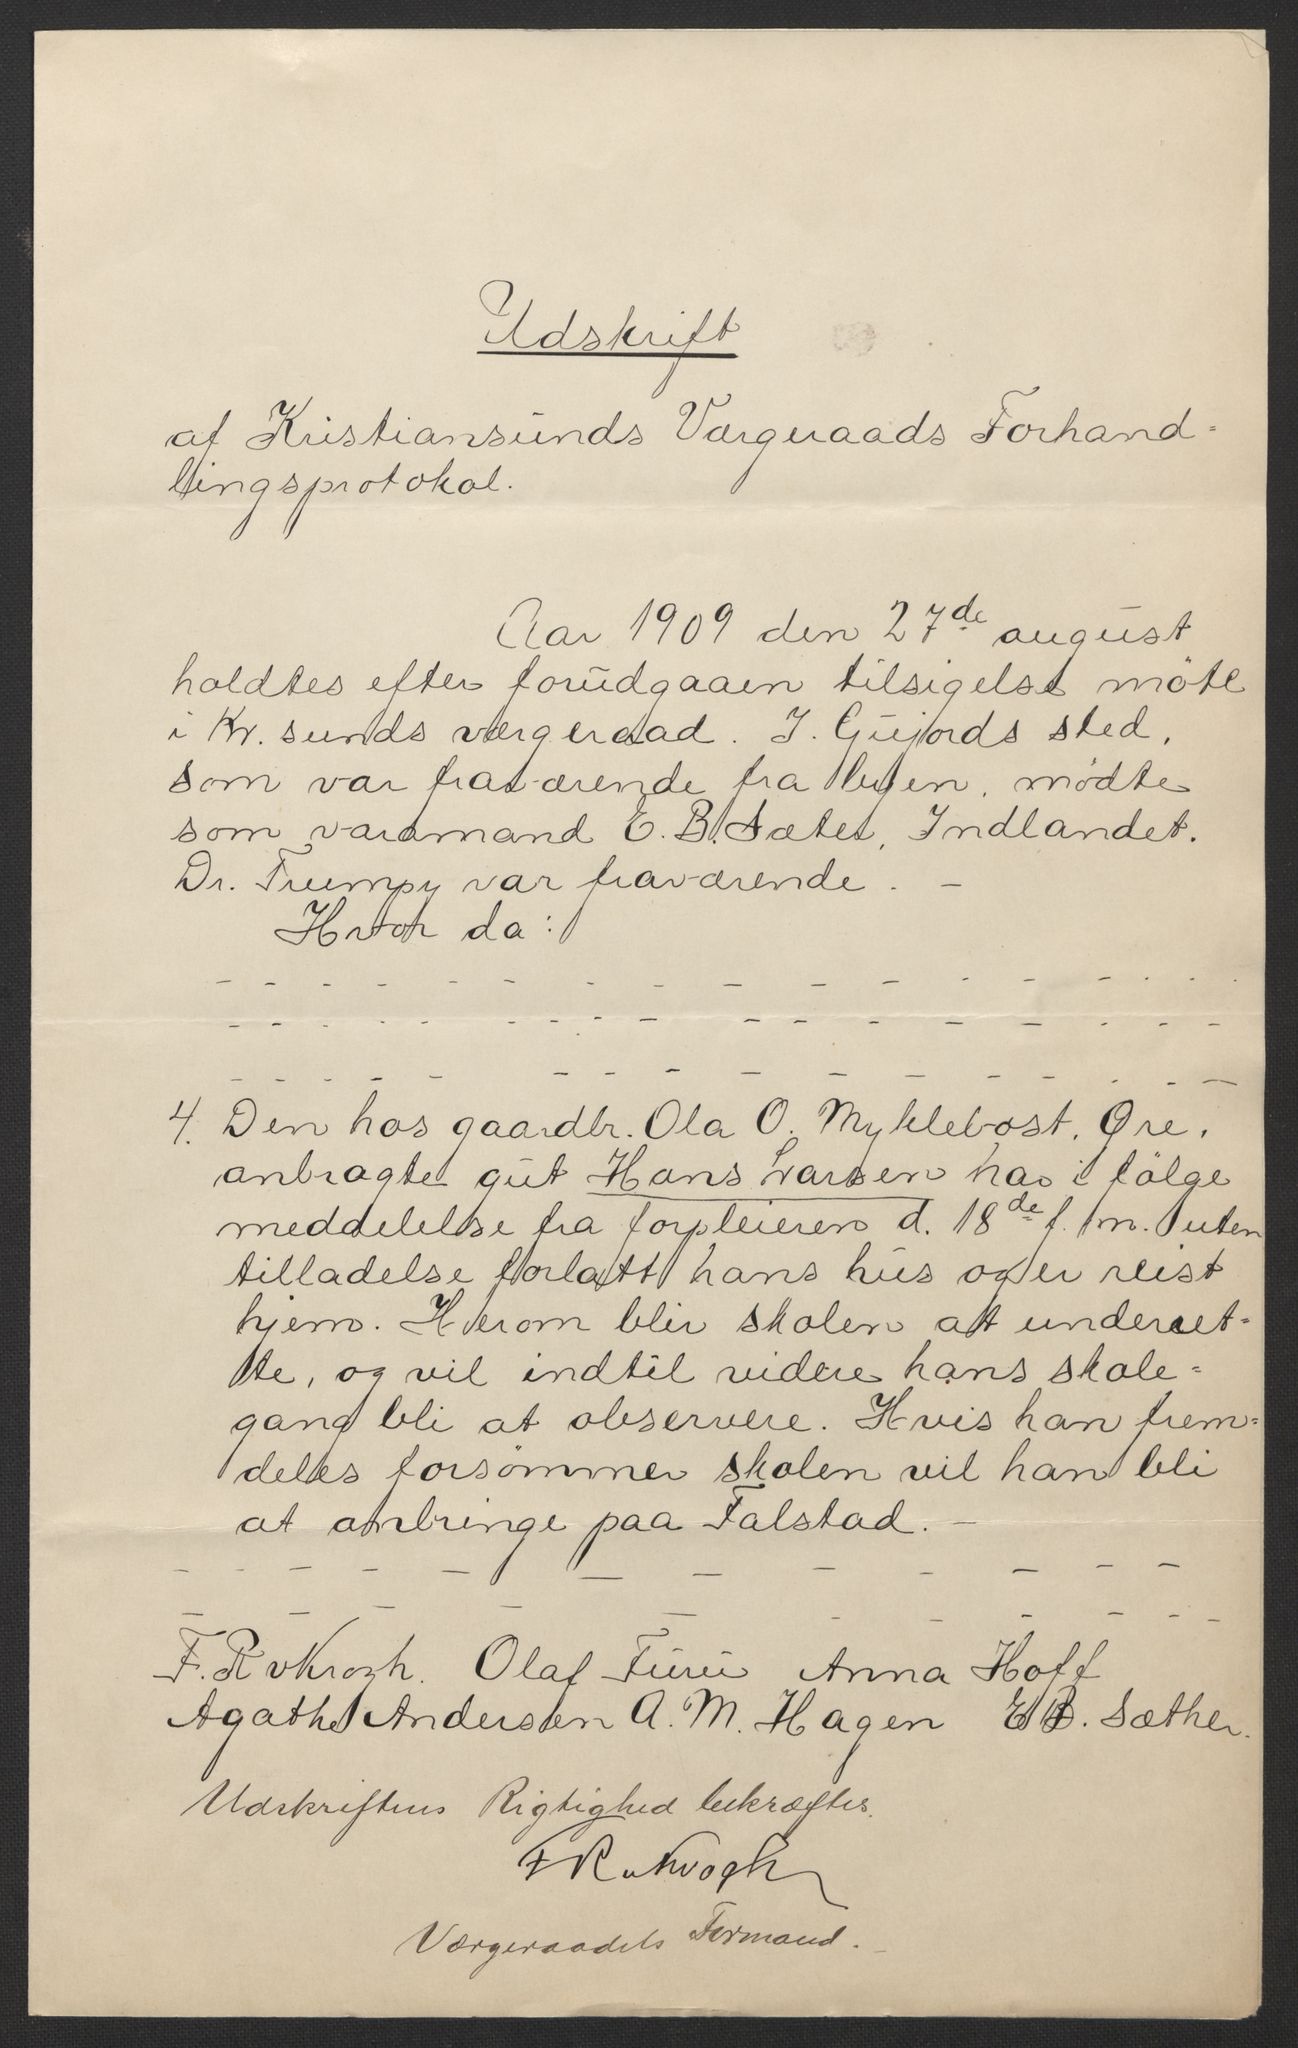 Udskrift
af Kristiansunds Værgeraads Forhand-
lingsprotokol.
Aar 1909 den 27de august
holdtes efter forudgaaen tilsigelse möte
i Kr. sunds værgeraad. I. Gujords sted,
som var fraværende fra byen, mødte
som varamand E. B. Sæter, Indlandet.
Dr. Trumpy var fraværende. -
Hvor da:
4. Den hos gaardbr. Ola O. Myklebost, Øre,
anbragte gut Hans Larsen har i følge
meddelelse fra forpleieren d. 18de f. m. uten
tilladelse forlatt hans hus og er reist
hjem. Herom blir skolen at underret-
te, og vil indtil videre hans skole-
gang bli at observere. Hvis han frem-
deles forsömmer skolen vil han bli
at anbringe paa Falstad. -
F. R. v Krogh. Olaf Furu Anna Hoff
Agathe Andersen A. M. Hagen E. B. Sæther.
Udskriftens Rigtighed bekræftes.
F R v Krogh
Værgeraadets Formand. -